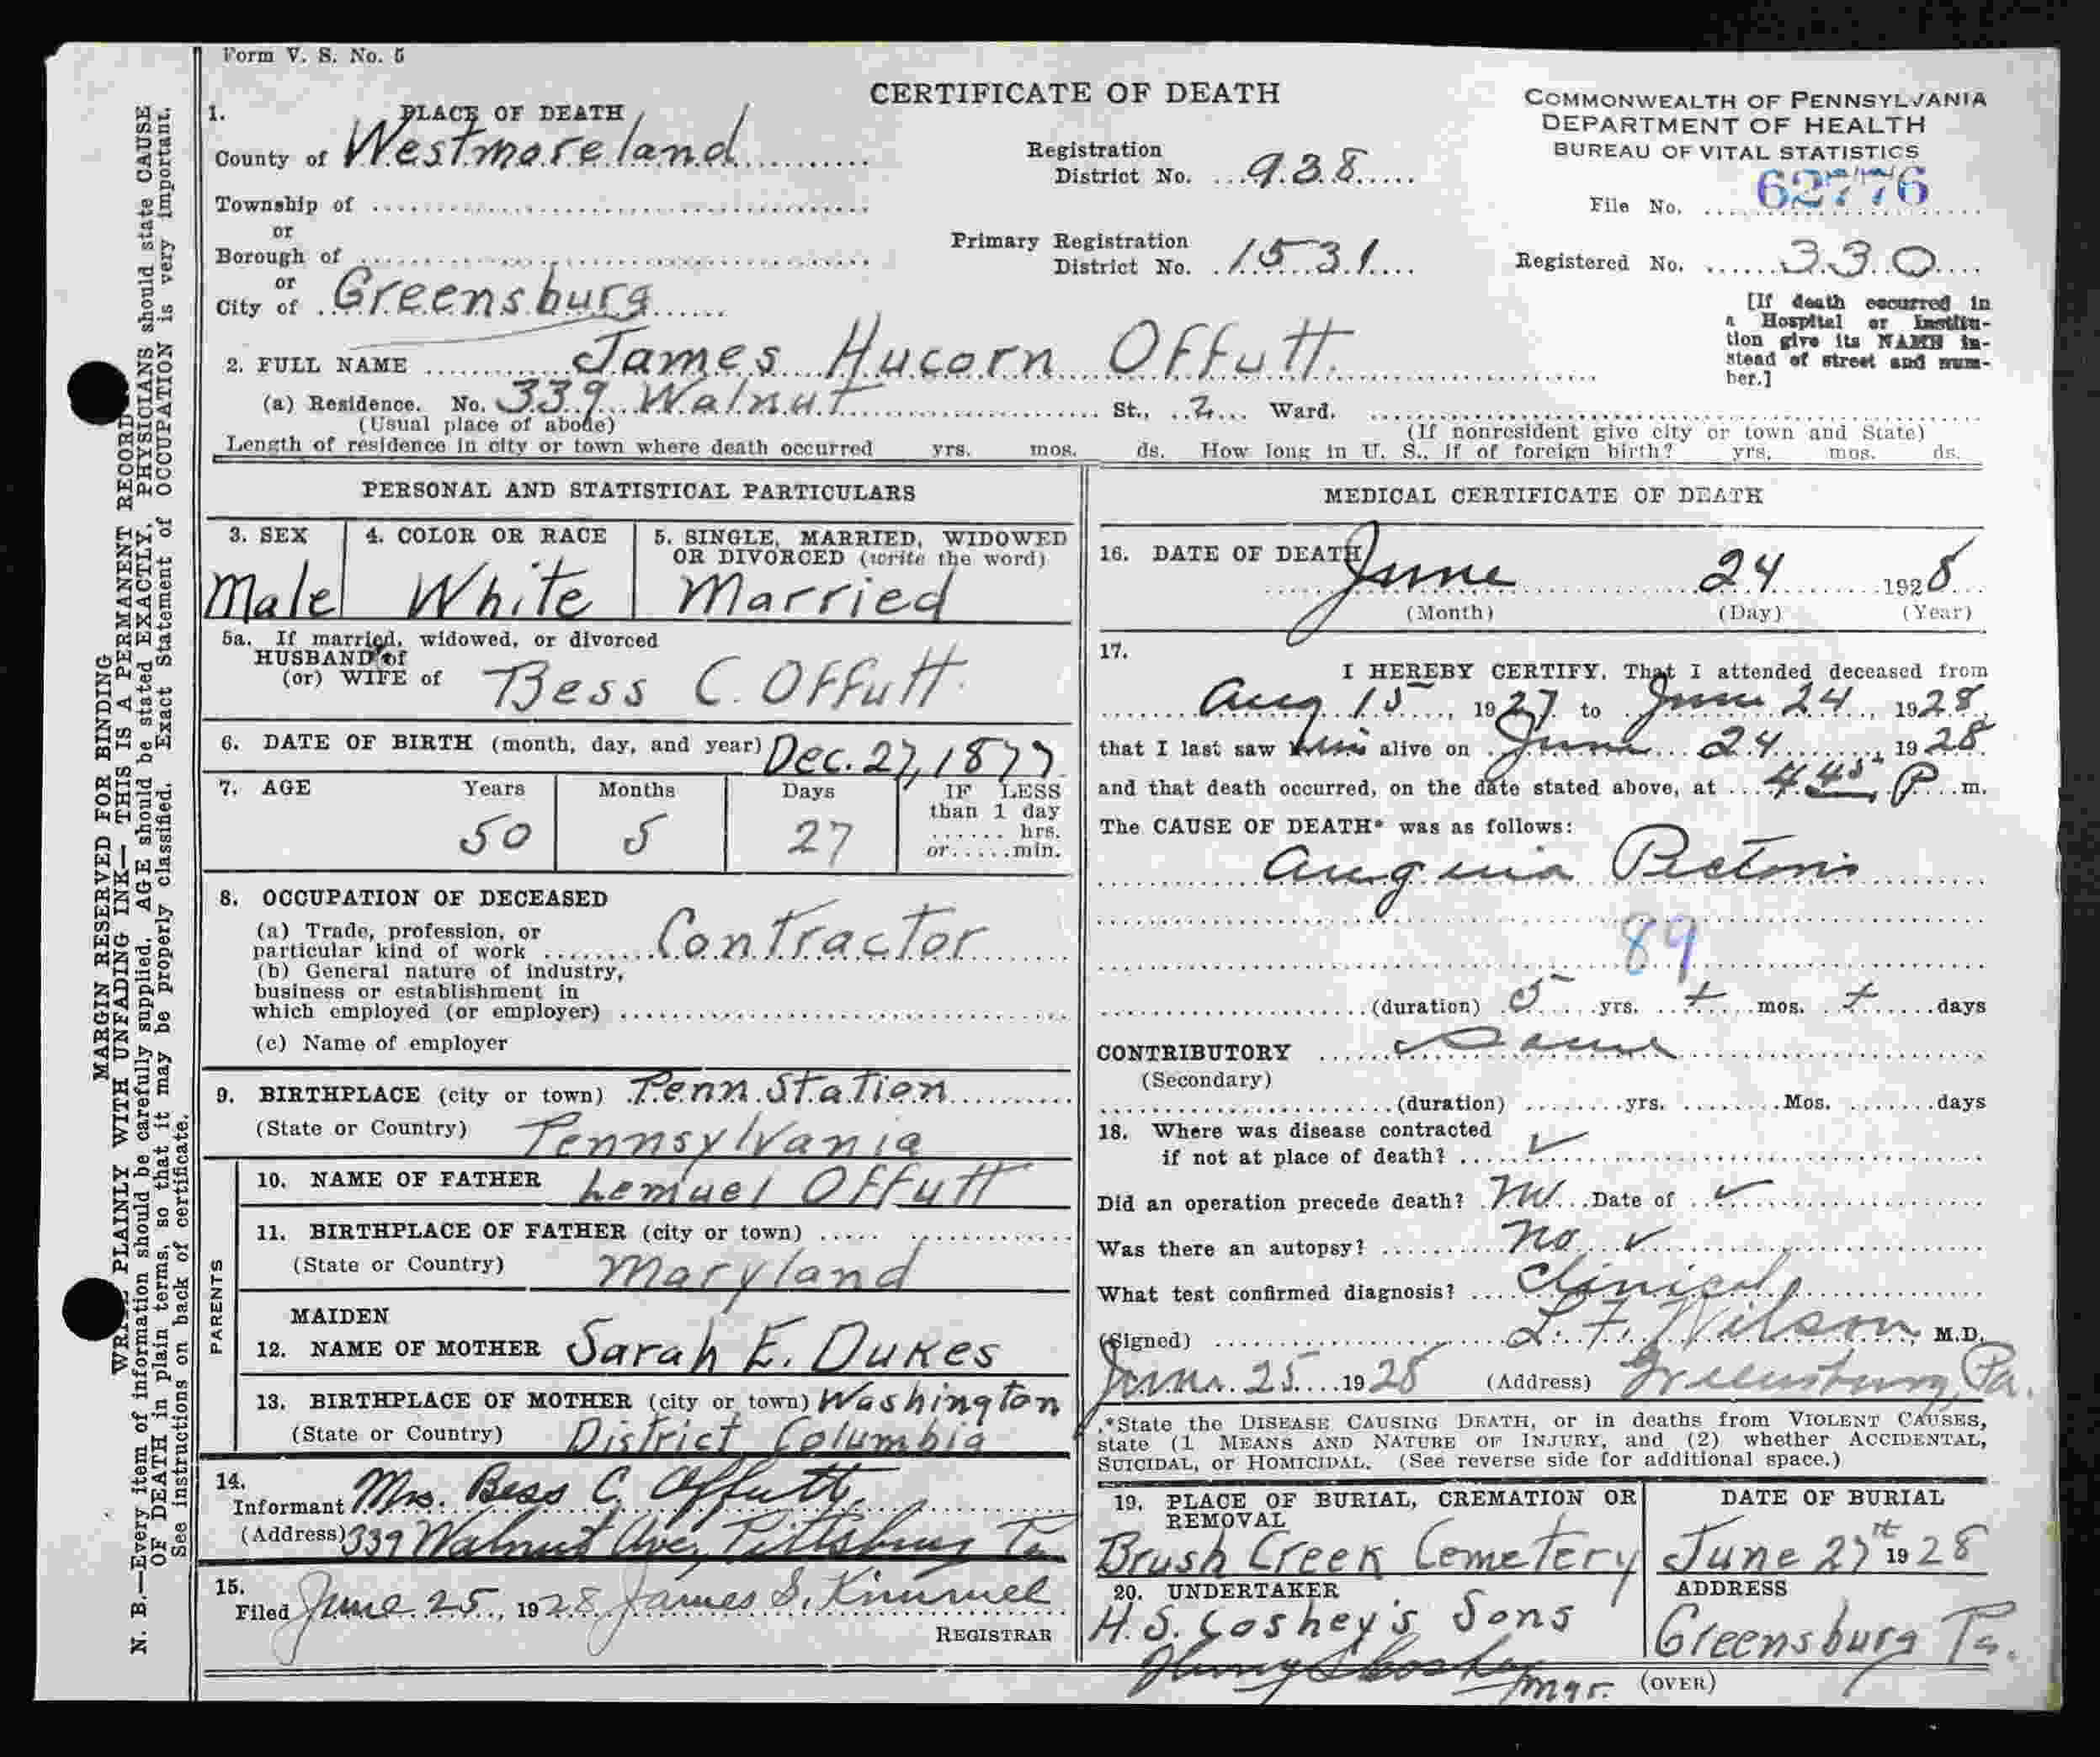 Form V. S. No. 5
CERTIFICATE OF DEATH
COMMONWEALTH OF PENNSYLVANIA
DEPARTMENT OF HEALTH
BUREAU OF VITAL STATISTICS
1. PLACE OF DEATH
County of Westmoreland
Registration District No. 938
File No. 62776
Township of
or
Borough of
Primary Registration District No. 1531
Registered No. 330
or
City of Greensburg
[If death occurred in
a Hospital or Institu-
tion give its NAME in-
stead of street and num-
ber.]
2. FULL NAME James Hucorn Offutt.
(a) Residence. No. 339 Walnut St., 2 Ward.
(Usual place of abode)
(If nonresident give city or town and State)
Length of residence in city or town where death occurred yrs. mos. ds. How long in U. S., if of foreign birth? yrs. mos. ds.
PERSONAL AND STATISTICAL PARTICULARS
3. SEX
4. COLOR OR RACE
5. SINGLE, MARRIED, WIDOWED
OR DIVORCED (write the word)
Male White Married
5a. If married, widowed, or divorced
HUSBAND of
(or) WIFE of Bess C. Offutt.
6. DATE OF BIRTH (month, day, and year) Dec. 27, 1877
7. AGE Years Months Days IF LESS
than 1 day
hrs.
50 5 27 or min.
8. OCCUPATION OF DECEASED
(a) Trade, profession, or
particular kind of work Contractor
(b) General nature of industry,
business or establishment in
which employed (or employer)
(c) Name of employer
9. BIRTHPLACE (city or town) Penn Station
(State or Country) Pennsylvania
PARENTS
10. NAME OF FATHER Lemuel Offutt
11. BIRTHPLACE OF FATHER (city or town)
(State or Country) Maryland
MAIDEN
12. NAME OF MOTHER Sarah E. Dukes
13. BIRTHPLACE OF MOTHER (city or town) Washington
(State or Country) District Columbia
14.
Informant Mrs. Bess C. Offutt,
(Address) 339 Walnut Ave, Pittsburg Pa
15.
Filed June 25, 1928 James S. Kimmel
REGISTRAR
MEDICAL CERTIFICATE OF DEATH
16. DATE OF DEATH June 24 1928
(Month) (Day) (Year)
17.
I HEREBY CERTIFY, That I attended deceased from
Aug 15, 1927 to June 24, 1928,
that I last saw him alive on June 24, 1928
and that death occurred, on the date stated above, at 4.45 P m.
The CAUSE OF DEATH* was as follows:
Angina Pectoris
89
(duration) 5 yrs. + mos. + days
CONTRIBUTORY Same
(Secondary)
(duration) yrs. Mos. days
18. Where was disease contracted
if not at place of death? ✓
Did an operation precede death? No Date of ✓
Was there an autopsy? No ✓
What test confirmed diagnosis? Clinical
(Signed) L. F. Wilson, M.D.
June 25 1928 (Address) Greensburg, Pa.
*State the DISEASE CAUSING DEATH, or in deaths from VIOLENT CAUSES,
state (1 MEANS AND NATURE OF INJURY, and (2) whether ACCIDENTAL,
SUICIDAL, or HOMICIDAL. (See reverse side for additional space.)
19. PLACE OF BURIAL, CREMATION OR
REMOVAL
Brush Creek Cemetery
DATE OF BURIAL
June 27th 1928
20. UNDERTAKER
H. S. Coshey's Sons
mgr.
ADDRESS
Greensburg Pa.
(OVER)
MARGIN RESERVED FOR BINDING
WRITE PLAINLY WITH UNFADING INK— THIS IS A PERMANENT RECORD
N. B.—Every item of information should be carefully supplied. AGE should be stated EXACTLY. PHYSICIANS should state CAUSE
OF DEATH in plain terms, so that it may be properly classified. Exact Statement of OCCUPATION is very important.
See instructions on back of certificate.